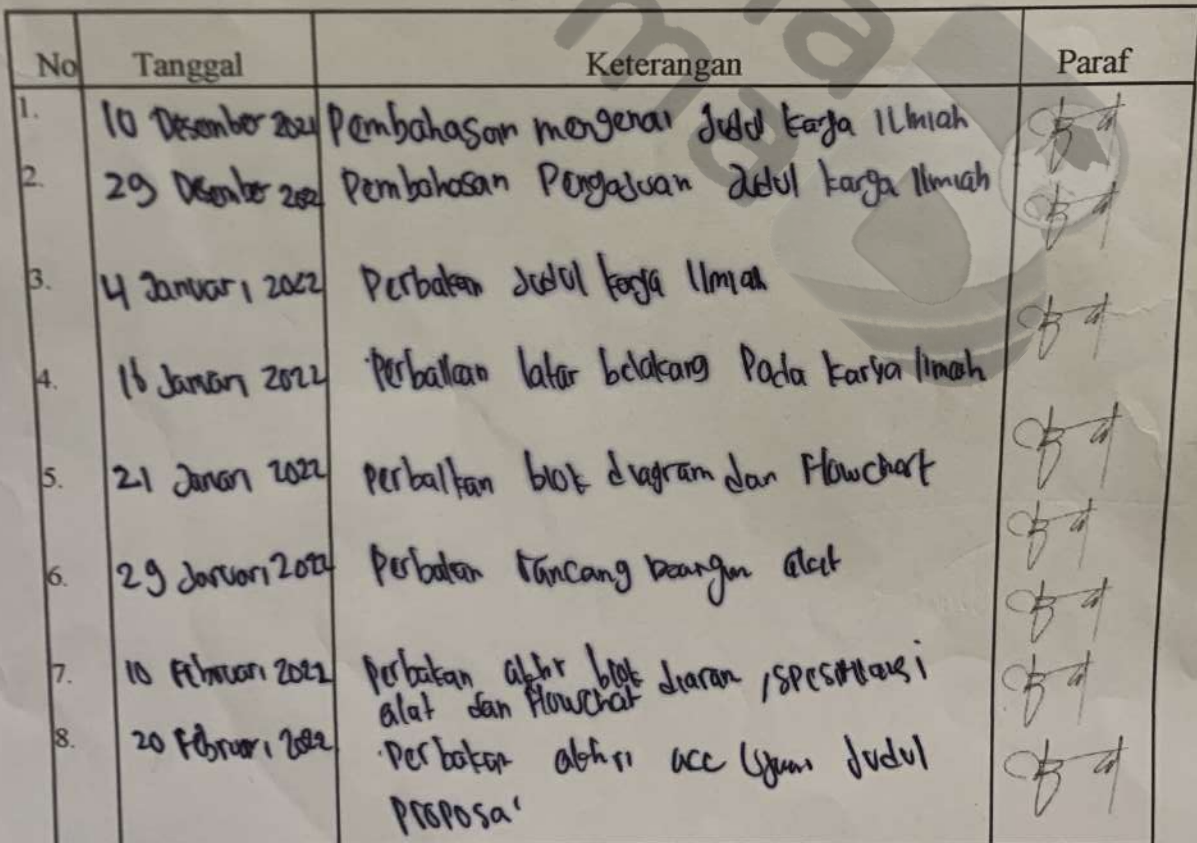 No Tanggal Keterangan Paraf
1. 10 Desember 2021 Pembahasan mengenai Judul karya Ilmiah
2. 29 Desember 2021 Pembahasan Pengajuan Judul karya Ilmiah
3. 4 Januari 2022 Perbaikan Judul karya Ilmiah
4. 16 Januari 2022 Perbaikan latar belakang Pada karya Ilmiah
5. 21 Januari 2022 Perbaikan blok diagram dan Flowchart
6. 29 Januari 2022 Perbaikan rancang bangun alat
7. 10 Februari 2022 Perbaikan akhir blok diaram, spesifikasi
alat dan Flowchat
8. 20 Februari 2022 Perbaikan akhir acc Ujian Judul
Proposal